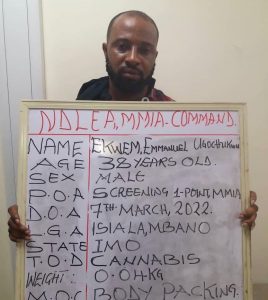 NDLEA, MMIA. COMMAND.
NAME EKWEM, EMMANUEL UGOCHUKWU
AGE 38 YEARS OLD.
SEX MALE
P.O.A SCREENING 1-POINT, MMIA
D.O.A 7TH MARCH, 2022.
L.G.A ISIALAMBANO
STATE IMO
T.O.D CANNABIS
WEIGHT: 0.04KG
M.O.C BODY PACKING.